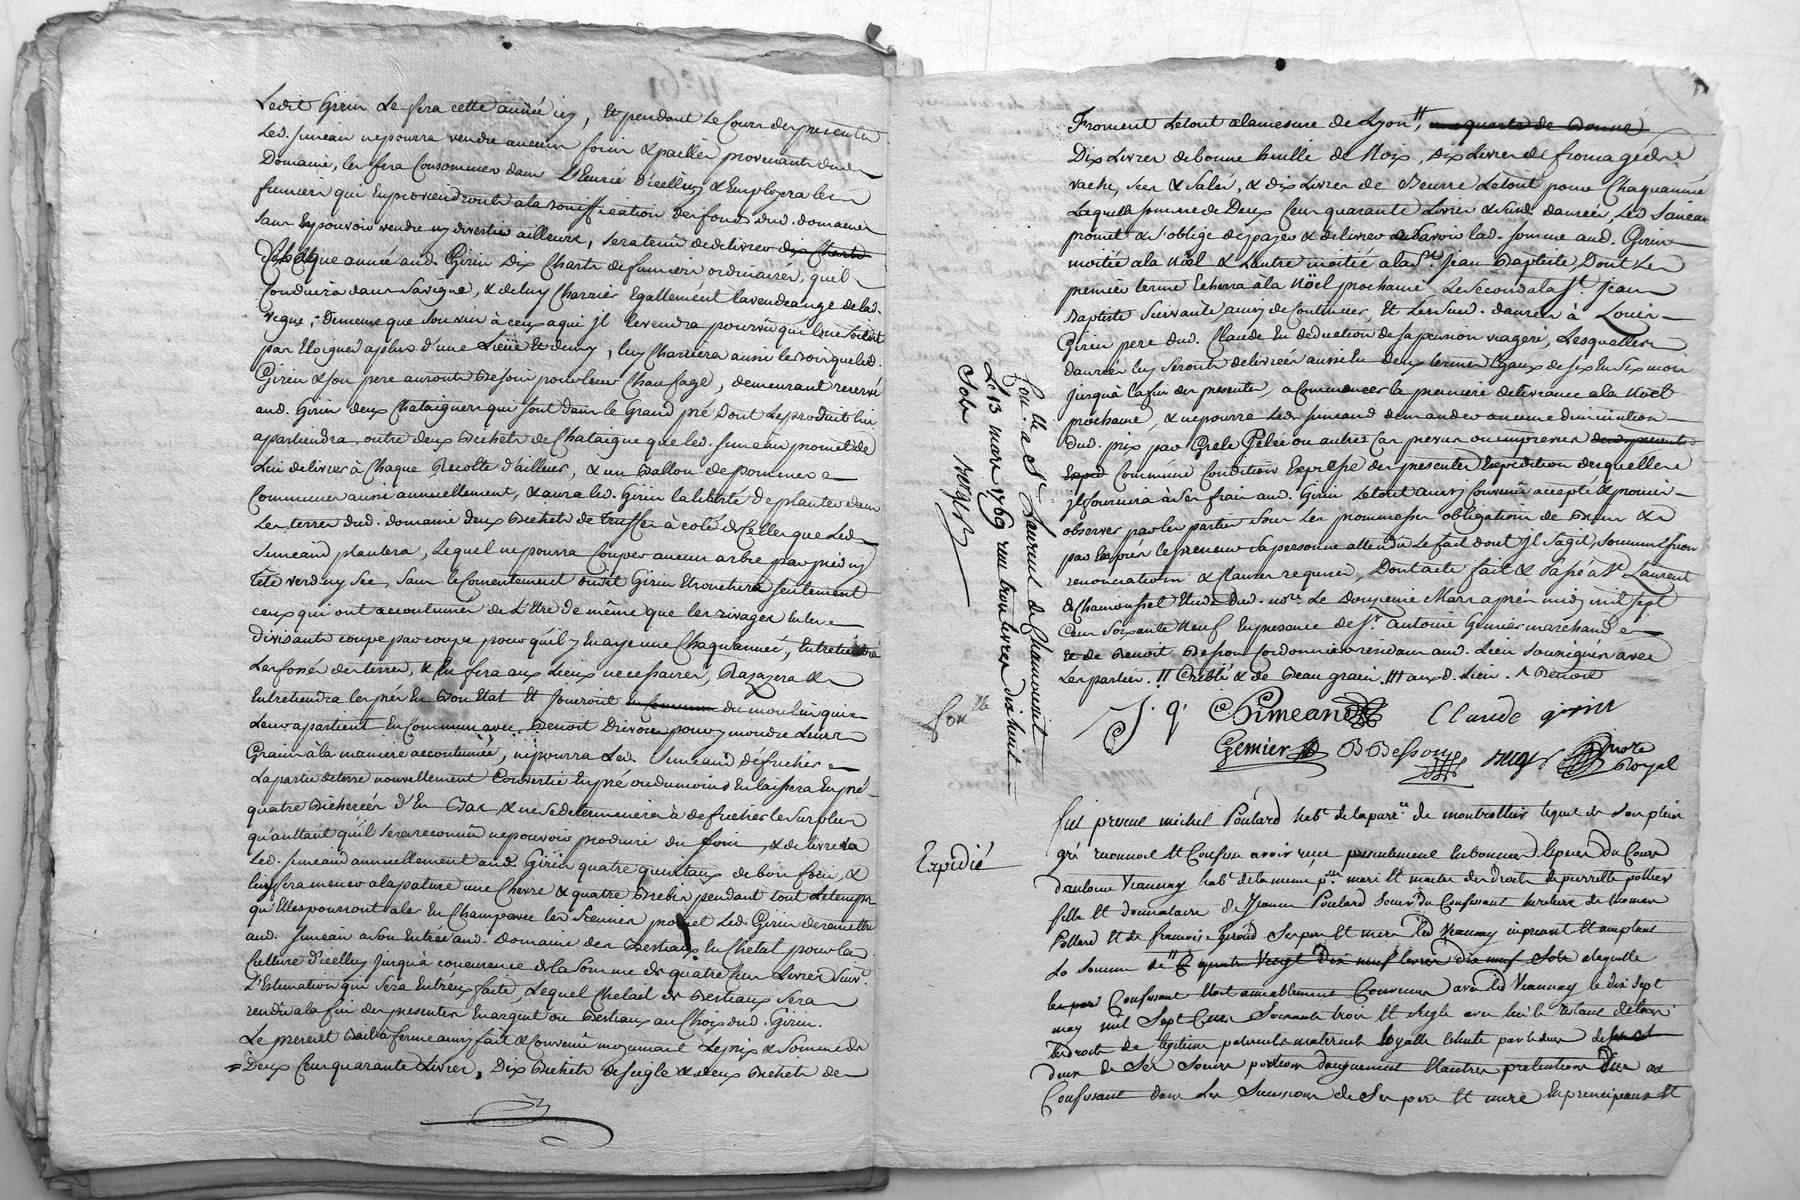 Ledit Girin Le fera cette année icy, Et pendant Le Cours des presentes
Led. Simeand ne pourra vendre aucuns foins & pailles provenants dud.
Domaine, les fera Consommer dans L'Ecurie D'icelluy & Employera les
fumiers qui En proviendronts a la bonification des fonds dud. domaine
sans En pouvoir vendre ny divertir ailleurs, sera tenu de delivrer dix Chards
Chasque année aud. Girin Dix Chards de fumiers ordinaires, qu'il
Conduira dans sa vigne, & de luy Charrier Egallement la vendeange de lad.
vigne, De meme que son vin à ceux a qui Jl le vendra pourvû qu'ils ne soient
pas Eloignés a plus d'une Lieüe Et demy, luy Charriera aussi le bois que led.
Girin & son pere auronts Besoin pour leur Chaufage, demeurant reservé
aud. Girin deux Chataigners qui sont dans le Grand pré Dont Le produit lui
apartiendra, outre deux Bichets de Chataigne que led. Simeand promet de
Lui delivrer à Chaque Recolte d'ailleurs, & un Ballon de pommes
Communes aussi annuellement, & aura led. Girin la liberté de planter dans
Les terres dud. domaine deux Bichets de Truffes à coté de Celles que Led.
Simeand plantera, Lequel ne pourra Couper aucun arbre par pied ny
tête verd ny sec, sans le Consentement dudit Girin Ebranchera seulement
ceux qui ont accoutumés de L'Etre de même que les rivages En les
divisants coupe par coupe pour qu'il y En aye une Chaqu'année, Entretiendra
Les fossés des terres, & En fera aux Lieux necessaires, Razera &
Entretiendra les prés En Bon Etat Et Jouiront en commun du moulin qui
Leur apartient En Commun avec Benoit Drivon pour y moudre Leurs
Grains à la maniere accoutumée, ne pourra Led. Simeand défricher
La partie de terre nouvellement Convertie En pré ou du moins En laissera En pré
quatre Bicherées d'En Bas, & ne se determinera à defricher le surplus
qu'auttant qu'il sera reconnû ne pouvoir produire du foin, & delivrera
Led. Simeand annuellement aud. Girin quatre quintaux de bon foin, &
luy fera mener a la pature une Chevre & quatre Brebis pendant tout Le temps
qu'Elles pourront aler En Champ avec les Siennes promet Led. Girin de remettre
aud. Simeand a son Entrée aud. Domaine des Bestiaux En Chetal pour la
Culture d'icelluy Jusqu'à concurence de la somme de quatre Cent Livres suiv.
L'Estimation qui sera Entr'eux faite, Lequel Chetail de Bestiaux sera
rendû a la fin des presentes En argent ou Bestiaux au Choix dud. Girin.
Le present Bail à ferme ainsy fait & Convenû moyennant Le prix & Somme de
Deux Cent quarante Livres, Dix Bichets de seigle & deux Bichets de
Froment Le tout a la mesure de Lyon,
Dix Livres de bonne huille de Noix, Dix Livres de fromage de
vache, sec & salés, & dix Livres de Beurre Le tout pour Chaqu'année
Laquelle somme de Deux Cent quarante Livres & susd. danrées Led. Simeand
promet & s'oblige de payer & delivrer a Savoir lad. somme aud. Girin
moitié a la Nöel & L'autre moitié a la St. Jean Baptiste, Dont Le
premier terme Echerra à la Nöel prochaine Le second a la St. Jean
Baptiste Suivante, ainsy de Continuer, Et Les susd. danrées à Louis
Girin pere dud. Claude En deduction de sa pension viagere, Lesquelles
danrées luy seronts delivrées aussi En deux termes Egaux de six En six mois
jusqu'à la fin des presentes, a Commencer la premiere delivrance a la Nöel
prochaine, & ne pourra Led. Simeand demander aucune diminution
dud. prix par Grele Gelée ou autres Cas prevus ou imprevus
Comme une Condition Expresse des presentes Expedition desquelles
jl fournira à ses frais aud. Girin Le tout ainsy Convenû accepté & promis
observer par les parties sous Les promesses obligations de Biens &
par Exprès le preneur sa personne attendû Le fait dont Jl s'agit, soumissions
renonciations & clauses requises, Dont acte fait & Passé à St. Laurent
de Chamousset Etude dud. nore. Le Douzieme Mars après midy mil sept
Cent Soixante Neuf En presence de Sr. antoine Gemier marchand
Et de Benoit Besson Cordonnier residants aud. Lieu soussignés avec
Les parties. Criblé & de Beau grain. aux d. Lieu.
Simeand Claude girin
Gemier B Besson nore
Royal
Con.lle a St. Laurent de Chamousset
Le 13 mars 1769 reçu trois livres dix huit
Sols
Con.lle
Expedié
fut present michel Poulard habt. de la parr. de montrottier lequel de son plein
gré reconnoit Et Confesse avoir reçu presentement En bonnes Especes du Cours
d'antoine Veannay habt. de la meme psse. mari Et maitre des droits de pierrette
fille Et donnataire de Jeanne Poulard soeur du Confessant heritiere de
Pollard Et de francoise Giroud ses pere Et mere led Veannay present Et acceptant
La somme de quatre Vingt Dix neuf livres dix neuf Sols a laquelle
Confessant Etoit amiablement Convenu avec led Veannay le dix sept
may mil Sept Cent Soixante trois Et Regle avec lui
les droits de legitime paternels maternels
deux de ses Soeurs Et autres pretentions
Confessant dans Les Successions de Ses pere Et mere En principaux Et